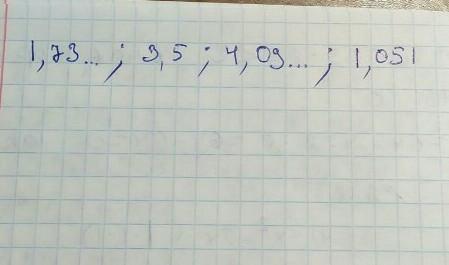 1,73... ; 3,5 ; 4,09... ; 1,051